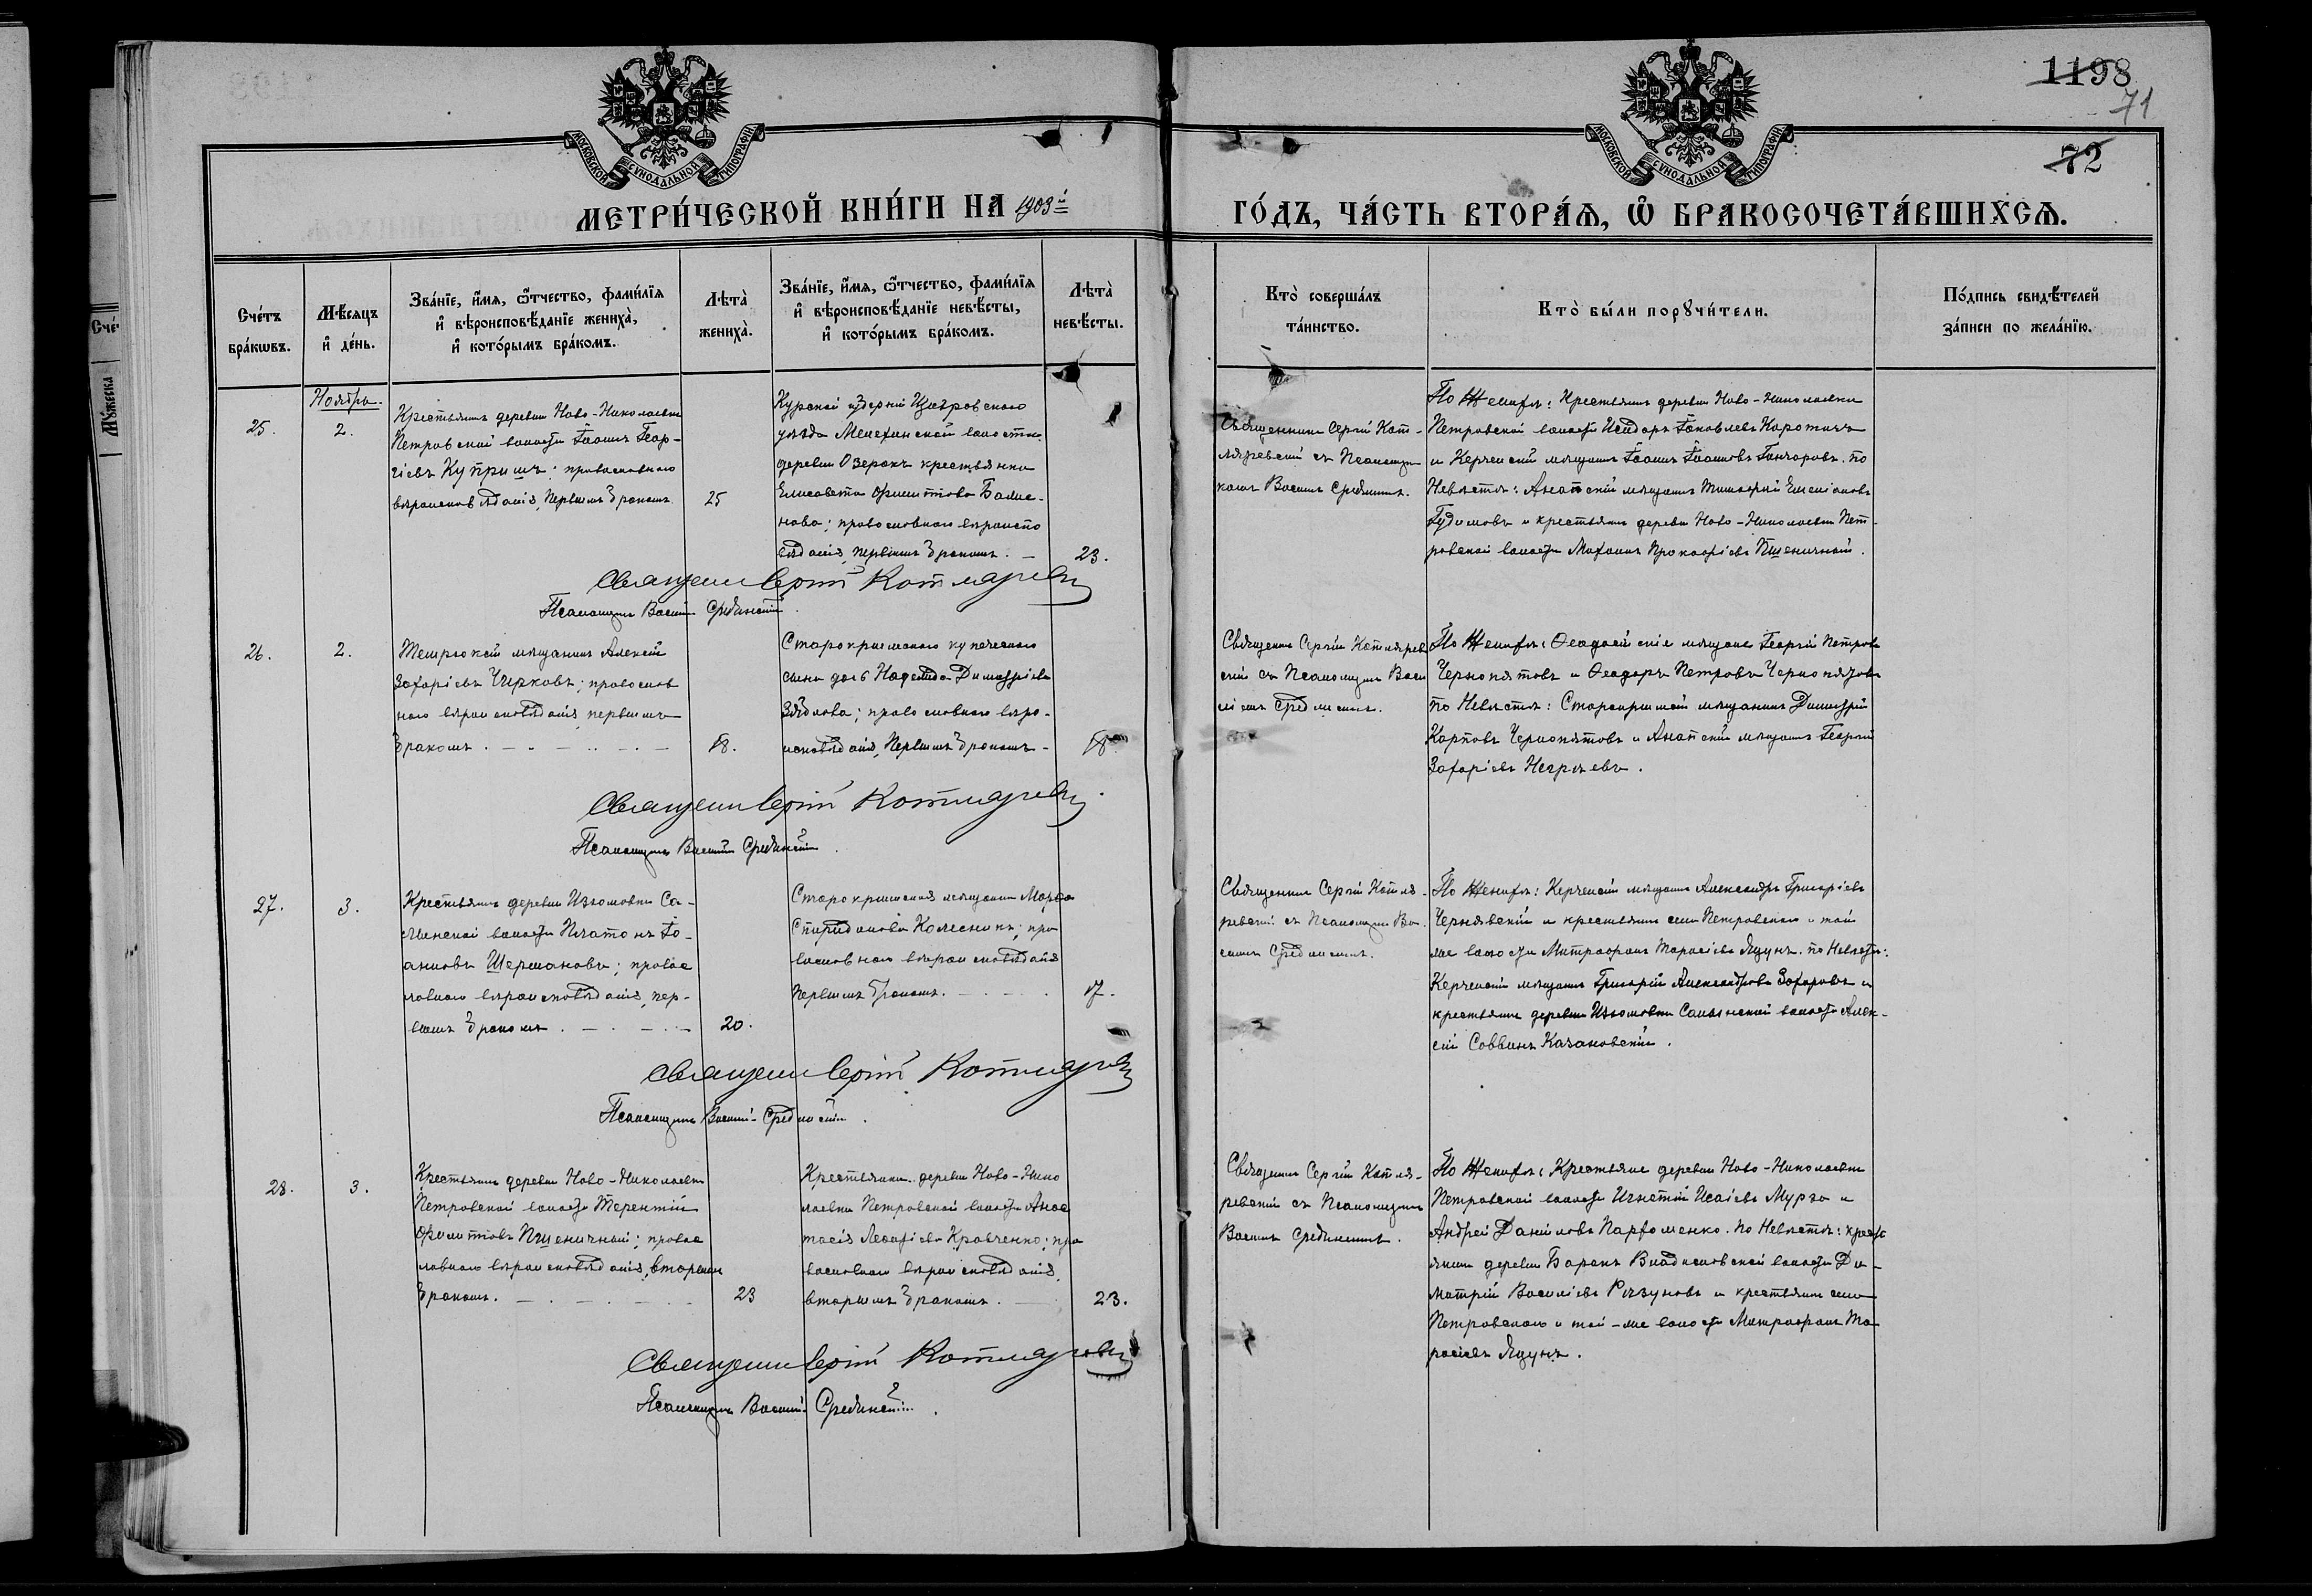 1198
71
72
МОСКОВСКОЙ СѴНОДАЛЬНОЙ ТИПОГРАФІИ
МОСКОВСКОЙ СѴНОДАЛЬНОЙ ТИПОГРАФІИ
МЕТРИ́ЧЕСКОЙ КНИ́ГИ НА 1903й ГО́ДЪ, ЧА́СТЬ ВТОРА́Ѧ, Ѽ БРАКОСОЧЕТА́ВШИХСѦ.
Сче́тъ
бра́кѡвъ.
Мѣ́сяцъ
и҆ де́нь.
Зва́нїе, и҆́мя, ѻ҆́тчество, фами́лїя
и҆ вѣроисповѣ́данїе жениха̀,
и҆ кото́рымъ бра́комъ.
Лѣта̀
жениха̀.
Зва́нїе, и҆́мя, ѻ҆́тчество, фами́лїя
и҆ вѣроисповѣ́данїе невѣ́сты,
и҆ кото́рымъ бра́комъ.
Лѣта̀
невѣ́сты.
Кто̀ соверша́лъ
та́инство.
Кто̀ бы́ли порꙋчи́тели.
По́дпись свидѣ́телей
за́писи по жела́нїю.
Ноябрь.
25.
2.
Крестьянинъ деревни Ново-Николаевки
Петровской волости Іоаннъ Геор-
гіевъ Купришъ; православнаго
вѣроисповѣданія, первымъ бракомъ
25
Курской губерніи Щигровскаго
уѣзда Мелехинской волости
деревни Озерокъ крестьянка
Елисавета Филиппова Балы-
нова; православнаго вѣроиспо
вѣданія, первымъ бракомъ. —
23.
Священникъ Сергій Кот-
ляревскій съ Псаломщи
комъ Васил. Срединскимъ.
По Женихѣ: Крестьянинъ деревни Ново-Николаевки
Петровской волости Исидоръ Іаковлевъ Коротичъ
и Керченскій мѣщанинъ Іоаннъ Іоанновъ Гончаровъ. по
Невѣстѣ: Анапскій мѣщанинъ Тимофей Емеліановъ
Гудимовъ и крестьянинъ деревни Ново-Николаевки Пет-
ровской волости Прокофіевъ Пшеничный.
Священникъ Сергій Котляревскій
Псаломщикъ Василій Срединскій.
26.
2.
Темрюкскій мѣщанинъ Алексій
Захаріевъ Чирковъ; православ
наго вѣроисповѣданія первымъ
бракомъ.
18.
Старокрымскаго купеческаго
сына дочь Надежда Димитріева
православнаго вѣро-
исповѣданія, первымъ бракомъ -
18.
Священникъ Сергій Котлярев
скій съ Псаломщик. Васи
ліемъ Срединскимъ.
По Женихѣ: Ѳеодосійскіе мѣщане Георгій Петровъ
Чернопятовъ и Ѳеодоръ Петровъ Чернопятовъ
по Невѣстѣ: Старокрымскій мѣщанинъ Димитрій
Карповъ Чернопятовъ и Анапскій мѣщанинъ Георгій
Захаріевъ Негрѣевъ.
Священникъ Сергій Котляревскій
Псаломщикъ Василій Срединскій.
27.
3.
Крестьянинъ деревни Изюмовки Са-
лынской волости Платонъ Іо-
анновъ Шермановъ; правос
лавнаго вѣроисповѣданія, пер-
вымъ бракомъ.
20.
Старокрымская мѣщанка Марѳа
Спиридонова Колесникъ; пра
вославнаго вѣроисповѣданія
первымъ бракомъ.
17.
Священникъ Сергій Котля-
ревскій съ Псаломщик. Ва-
силіемъ Срединскимъ.
По Женихѣ: Керченскій мѣщанинъ Александръ Григоріевъ
Чернявскій и крестьянинъ села Петровскаго и той
же волости Митрофанъ Тарасіевъ Яцунъ. по Невѣстѣ:
Керченскій мѣщанинъ Григорій Александровъ Захаровъ и
крестьянинъ деревни Изюмовки Салынской волости Алек-
сій Саввинъ Качановскій.
Священникъ Сергій Котляревскій
Псаломщикъ Василій Срединскій.
28.
3.
Крестьянинъ деревни Ново-Николаевки
Петровской волости Терентій
Филипповъ Пшеничный; правос
лавнаго вѣроисповѣданія, вторымъ
бракомъ.
23
Крестьянка деревни Ново-Нико
лаевки Петровской волости Анас
тасія Кравченко; пра
вославнаго вѣроисповѣданія,
вторымъ бракомъ.
23.
Священникъ Сергій Котля-
ревскій съ Псаломщикомъ
Васил. Срединскимъ.
По Женихѣ: Крестьяне деревни Ново-Николаевки
Петровской волости Игнатій Исаіевъ Мурза и
Андрей Даніиловъ Парфоменко. по Невѣстѣ: крест
янинъ деревни Баракъ Владиславской волости Ди-
митрій Василіевъ Ризуновъ и крестьянинъ села
Петровскаго и той-же волости Митрофанъ Та-
расіевъ Яцунъ.
Священникъ Сергій Котляревскій
Псаломщикъ Василій Срединскій.